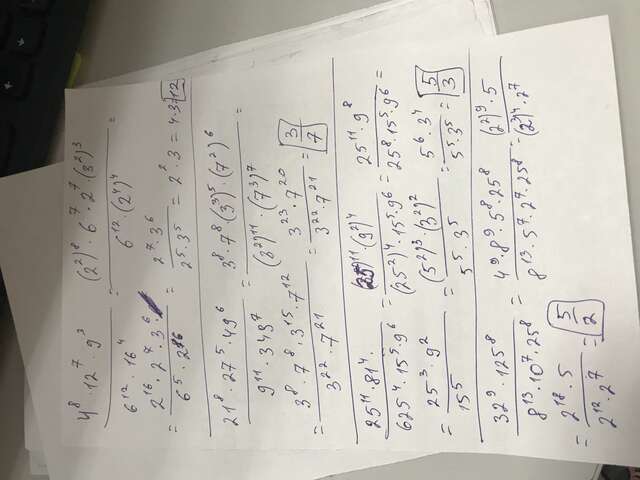 4⁸ · 12⁷ · 9³ / 6¹² · 16⁴ = (2²)⁸ · 6⁷ · 2⁷ · (3²)³ / 6¹² · (2⁴)⁴ =
= 2¹⁶ · 2⁷ · 3⁶ / 6⁵ · 2¹⁶ = 2⁷ · 3⁶ / 2⁵ · 3⁵ = 2² · 3 = 4 · 3 = 12
21⁸ · 27⁵ · 49⁶ / 9¹¹ · 343⁷ = 3⁸ · 7⁸ · (3³)⁵ · (7²)⁶ / (3²)¹¹ · (7³)⁷ =
= 3⁸ · 7⁸ · 3¹⁵ · 7¹² / 3²² · 7²¹ = 3²³ · 7²⁰ / 3²² · 7²¹ = 3/7
25¹¹ · 81⁴ / 625⁴ · 15⁵ · 9⁶ = (25)¹¹ (9²)⁴ / (25²)⁴ · 15⁵ · 9⁶ = 25¹¹ · 9⁸ / 25⁸ · 15⁵ · 9⁶ =
= 25³ · 9² / 15⁵ = (5²)³ (3²)² / 5⁵ · 3⁵ = 5⁶ · 3⁴ / 5⁵ 3⁵ = 5/3
32⁹ · 125⁸ / 8¹³ · 10⁷ · 25⁸ = 4⁹ · 8⁹ · 5⁸ · 25⁸ / 8¹³ · 5⁷ · 2⁷ · 25⁸ = (2²)⁹ · 5 / (2³)⁴ · 2⁷
= 2¹⁸ · 5 / 2¹² · 2⁷ = 5/2